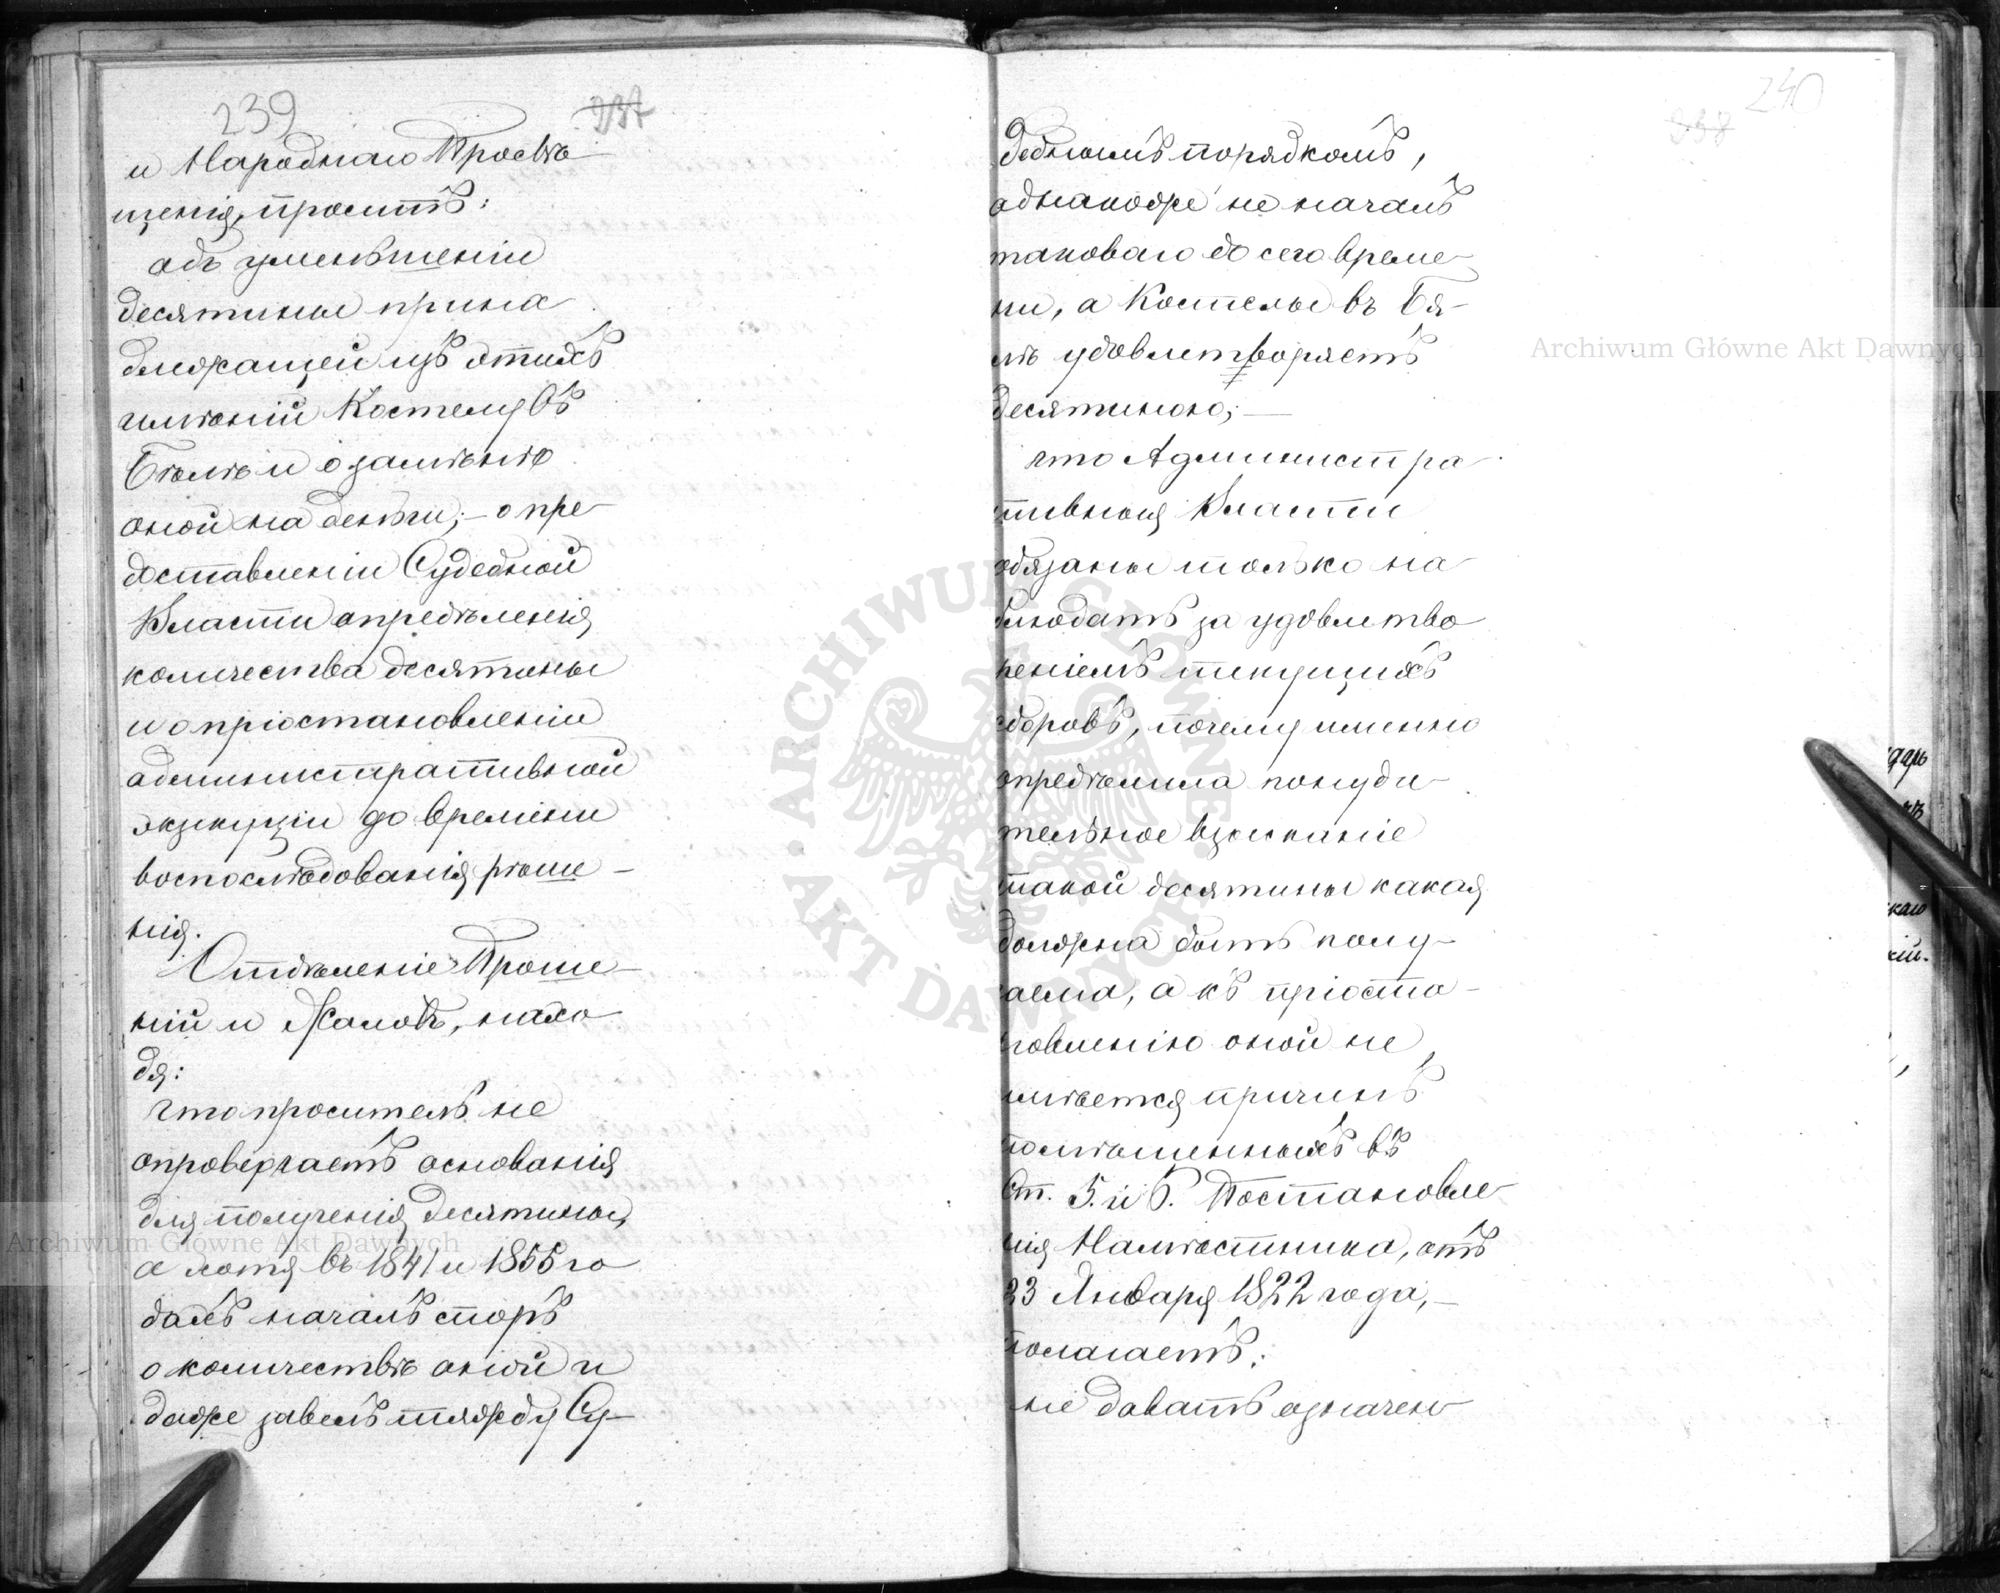 239
237
и Народнаго Просвѣ-
щенія, проситъ:
объ уменьшеніи
десятины прина
длежащей изъ этихъ
имѣній Костелу въ
Бѣлѣ и о замѣнѣ
оной на деньги; - о пре-
доставленіи Судебной
Власти опредѣленія
количества десятины
и о пріостановленіи
административной
экзекуціи до времени
воспослѣдованія рѣше-
нія.
Отдѣленіе Проше-
ній и Жалобъ, нахо
дя:
что проситель не
опровергаетъ основанія
для полученія десятины,
а хотя въ 1841 и 1855 го
дахъ началъ споръ
о количествѣ оной и
даже завелъ тяжбу Су-
240
238
дебнымъ порядкомъ,
однакоже не началъ
таковаго до сего време-
ни, а Костелы въ Бя-
лѣ удовлетворяетъ
десятиною; -
что Администра
тивныя Власти
обязаны только на
блюдать за удовлетво
реніемъ текущихъ
сборовъ, почему именно
опредѣлила понуди-
тельное взысканіе
такой десятины какая
должна быть полу-
чаема, а къ пріоста-
новленію оной не
имѣется причинъ
помѣщенныхъ въ
Ст. 5. и 6. Постановле-
нія Намѣстника, отъ
23 Января 1822 года, -
полагаетъ:
не давать означено
Archiwum Główne Akt Dawnych
Archiwum Główne Akt Dawnych
ARCHIWUM GŁÓWNE
AKT DAWNYCH